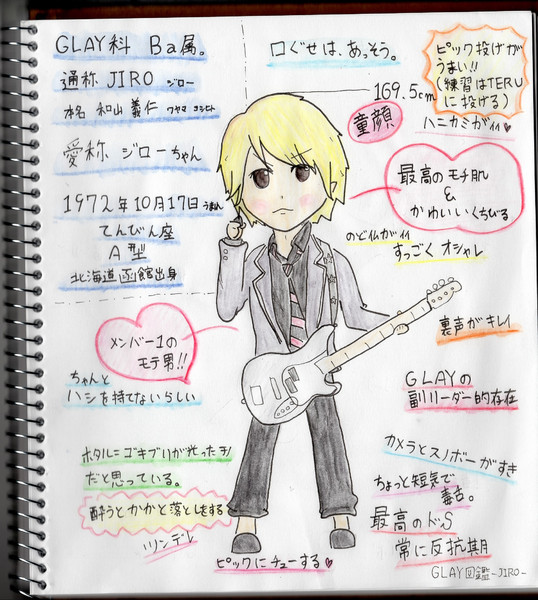 GLAY科 Ba属。
通称 JIRO ジロー
本名 和山 義仁 ワヤマ ヨシヒト
愛称 ジローちゃん
1972年10月17日うまれ
てんびん座
A型
北海道函館出身
口ぐせは、あっそう。
169.5cm
童顔
ピック投げが
うまい!!
(練習はTERU
に投げる)
ハニカミがイイ♥
最高のモチ肌
&
かわいいくちびる
のど仏がイイ
すっごく オシャレ
メンバー1の
モテ男!!
ちゃんと
ハシを持てないらしい
裏声がキレイ
GLAYの
副リーダー的存在
ホタル=ゴキブリが光ったモノ
だと思っている。
酔うとかかと落としをする
ツンデレ
ピックにチューする♥
カメラとスノボーがすき
ちょっと短気で
毒舌。
最高のドS
常に反抗期
GLAY図鑑-JIRO-